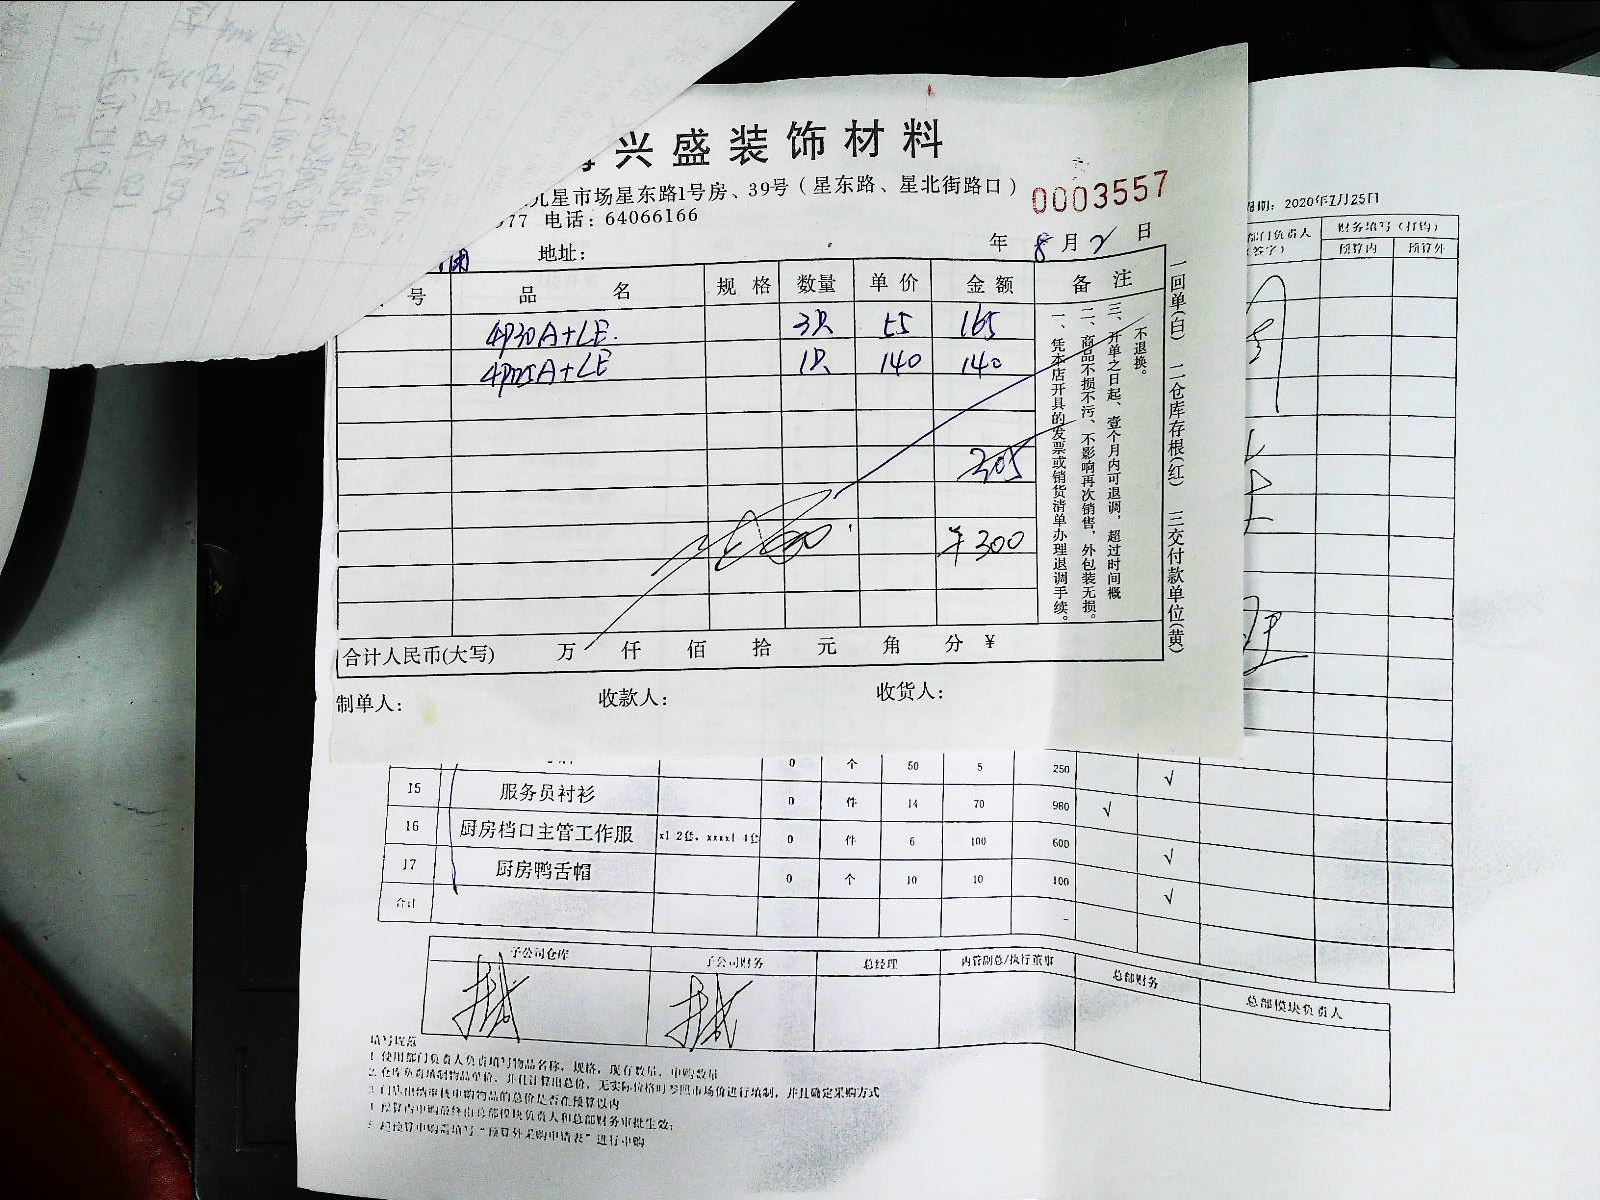 兴盛装饰材料
九星市场星东路1号房、39号（星东路、星北街路口）
0003557
77 电话：64066166
地址：
年 8 月 2 日
号 品名 规格 数量 单价 金额 备注
4P30A+LE. 3只 55 165
4P25A+LE 1只 140 140
305
￥300
合计人民币(大写) 万 仟 佰 拾 元 角 分 ￥
制单人： 收款人： 收货人：
一、凭本店开具的发票或销货清单办理退调手续。
二、商品不损不污、不影响再次销售，外包装无损。
三、开单之日起、壹个月内可退调，超过时间概
不退换。
一回单(白) 二仓库存根(红) 三交付款单位(黄)
期：2020年7月25日
部门负责人 财务填写（打钩）
签字） 预算内 预算外
0 个 50 5 250 √
15 服务员衬衫 0 件 14 70 980 √
16 厨房档口主管工作服 xl 2套，xxxxl 4套 0 件 6 100 600 √
17 厨房鸭舌帽 0 个 10 10 100 √
合计 -
子公司仓库 子公司财务 总经理 内管副总/执行董事 总部财务 总部模块负责人
填写规范
1. 使用部门负责人负责填写物品名称，规格，现有数量，申购数量
2. 仓库负责填制物品单价，并且计算出总价，无实际价格时参照市场价进行填制，并且确定采购方式
3. 门店出纳审核申购物品的总价是否在预算以内
4. 预算内申购最终由总部模块负责人和总部财务审批生效；
5. 超预算申购需填写“预算外采购申请表”进行申购